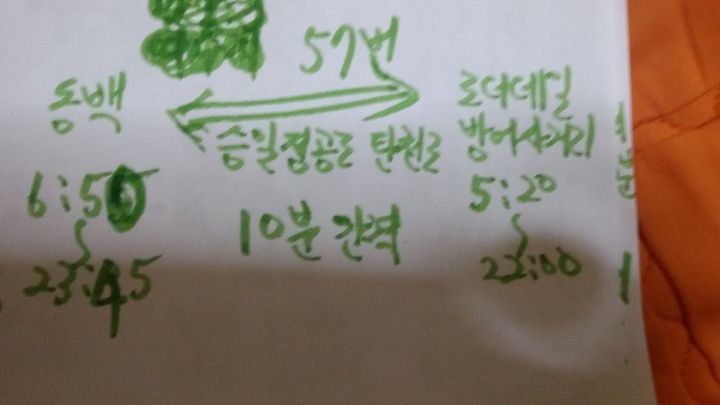 57번
동백
로더데일
방어사거리
승일정공로 탄천로
6:50
5:20
10분 간격
23:45
22:00